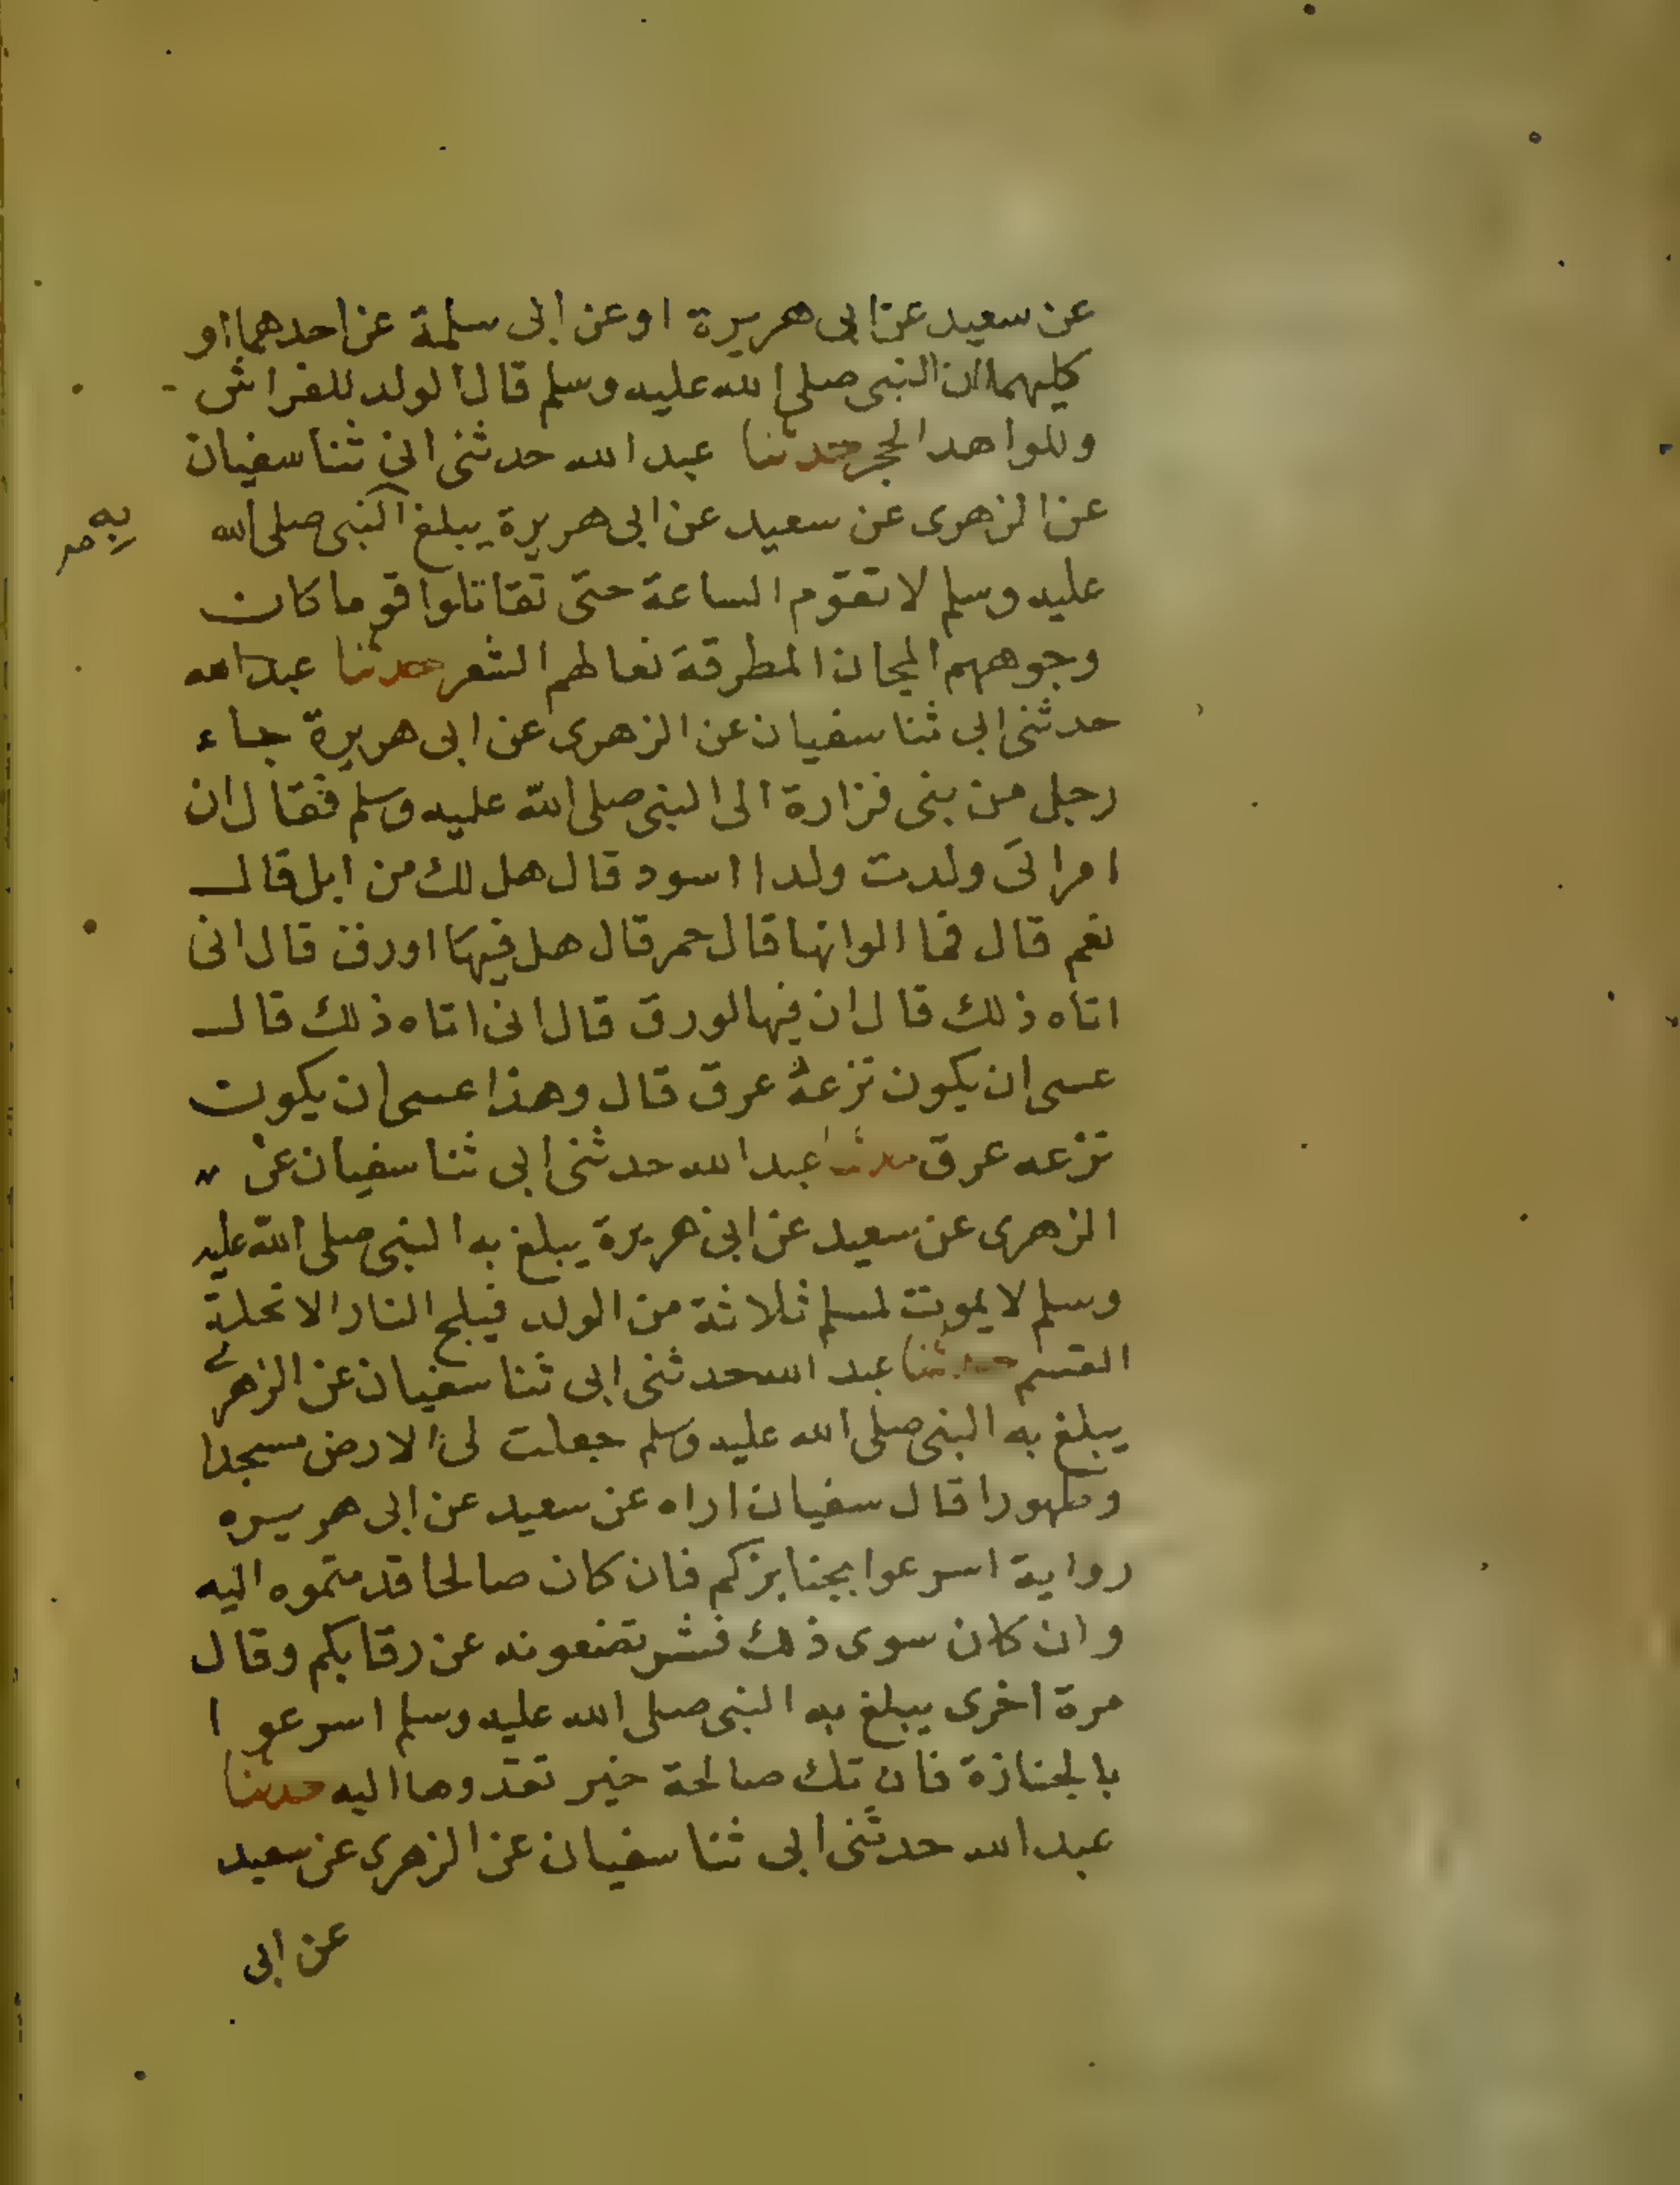 عن سعيد عن ابى هريرة او عن ابى سلمة عن احدهما او
كليهما ان النبى صلى الله عليه وسلم قال الولد للفراش
وللواهد الحجر حدثنا عبد الله حدثنى ابى ثنا سفيان
عن الزهرى عن سعيد عن ابى هريرة يبلغ النبى صلى الله
به صر
عليه وسلم لا تقوم الساعة حتى تقاتلوا قوما كان
وجوههم المجان المطرقة نعالهم الشعر حدثنا عبد الله
حدثنى ابى ثنا سفيان عن الزهرى عن ابى هريرة جاء
رجل من بنى فزارة الى النبى صلى الله عليه وسلم فقال ان
امراتى ولدت ولدا اسود قال هل لك من ابل قال
نعم قال فما الوانها قال حمر قال هل فيها اورق قال انى
اتاه ذلك قال ان فيها لورق قال انى اتاه ذلك قال
عسى ان يكون نزعه عرق قال وهذا عسى ان يكون
نزعه عرق حدثنا عبد الله حدثنى ابى ثنا سفيان عن
الزهرى عن سعيد عن ابى هريرة يبلغ به النبى صلى الله عليه
وسلم لا يموت لمسلم ثلاثة من الولد فيلج النار الا تحلة
القسم حدثنا عبد الله حدثنى ابى ثنا سفيان عن الزهرى
يبلغ به النبى صلى الله عليه وسلم جعلت لى الارض مسجدا
وطهورا قال سفيان اراه عن سعيد عن ابى هريره
رواية اسرعوا بجنايزكم فان كان صالحا قدمتموه اليه
وان كان سوى ذلك فشر تضعونه عن رقابكم وقال
مرة اخرى يبلغ به النبى صلى الله عليه وسلم اسرعوا
بالجنازة فان تك صالحة خير تقدموها اليه حدثنا
عبد الله حدثنى ابى ثنا سفيان عن الزهرى عن سعيد
عن ابى